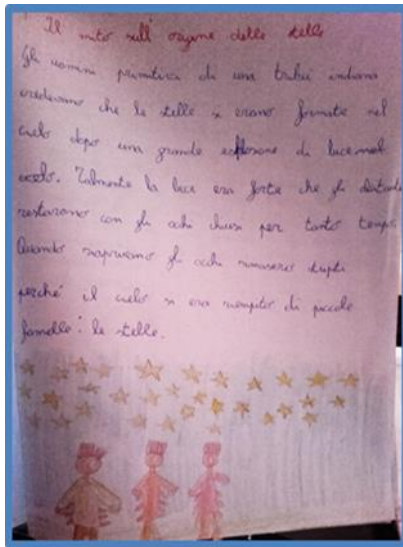 Il mito sull'origine delle stelle
Gli uomini primitivi di una tribù indiana
credevano che le stelle si erano formate nel
cielo dopo una grande esplosione di luce nel
cielo. Talmente la luce era forte che gli abitanti
restarono con gli occhi chiusi per tanto tempo.
Quando riaprirono gli occhi rimasero stupiti
perché il cielo si era riempito di piccole
fiammelle: le stelle.